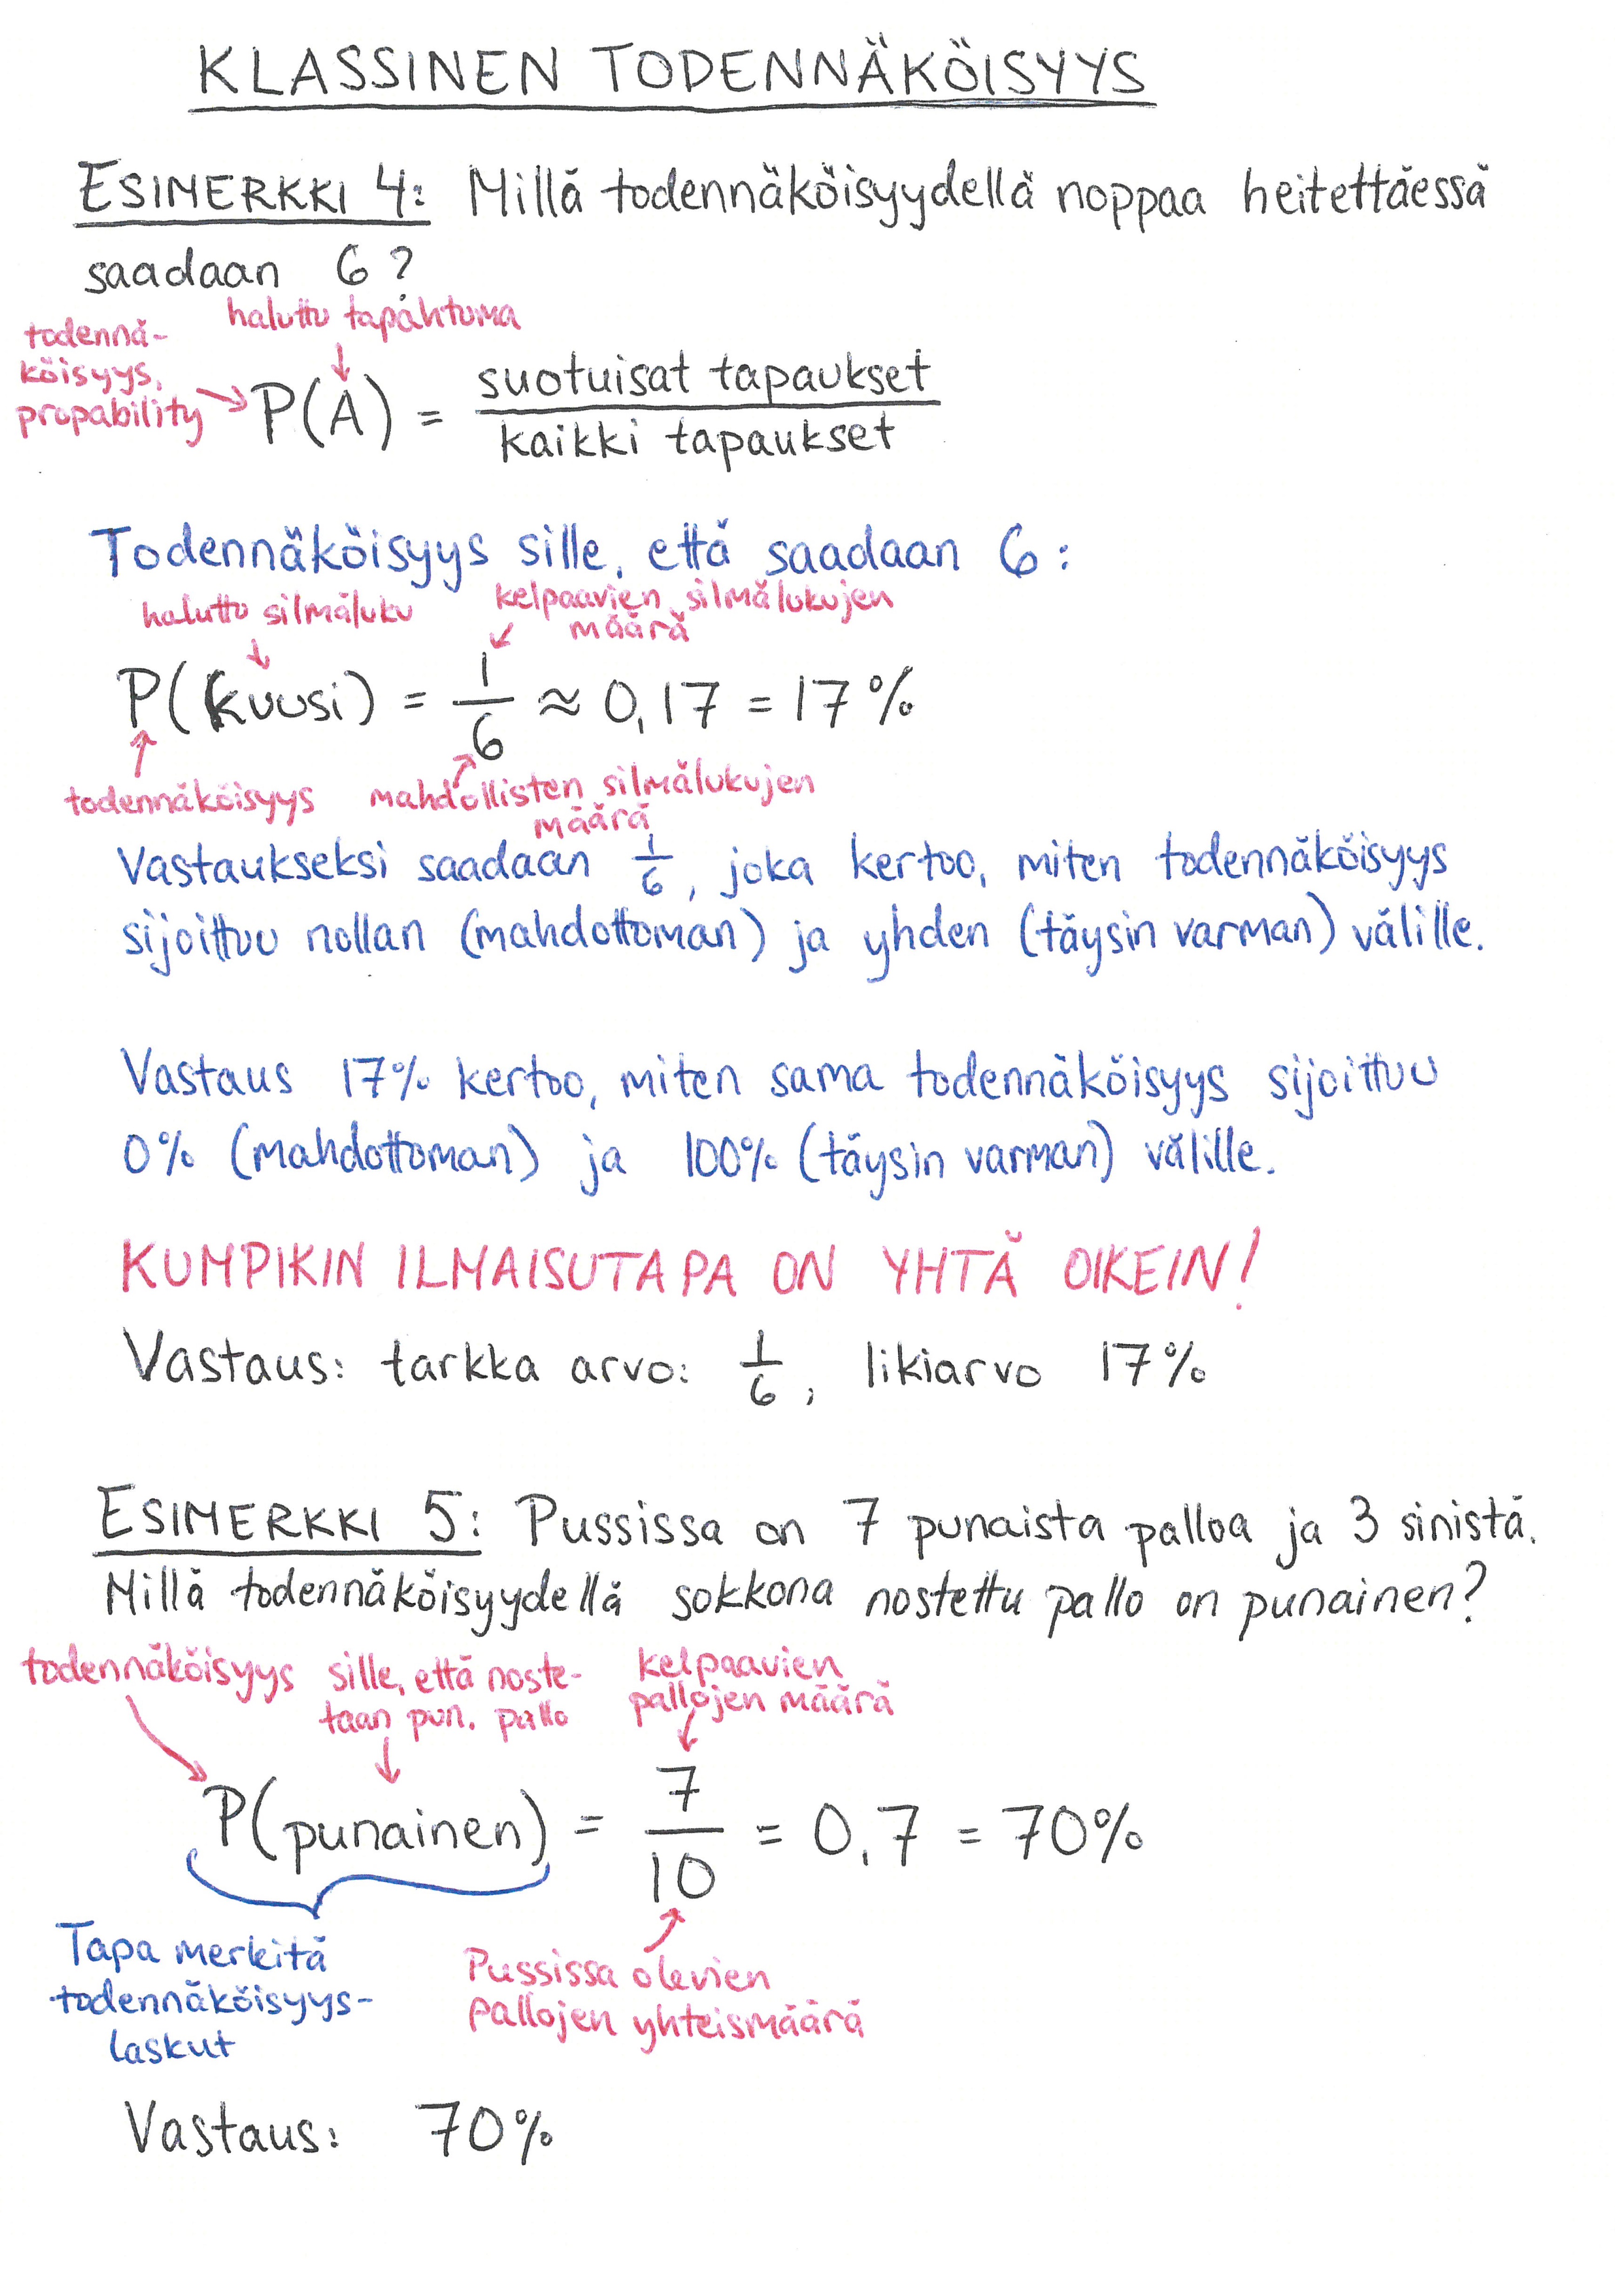 KLASSINEN TODENNÄKÖISYYS
ESIMERKKI 4: Millä todennäköisyydellä noppaa heitettäessä
saadaan 6?
haluttu tapahtuma
todennä-
köisyys,
propability
P(A) = suotuisat tapaukset / kaikki tapaukset
Todennäköisyys sille, että saadaan 6:
haluttu silmäluku
kelpaavien silmälukujen
määrä
P(kuusi) = 1/6 ≈ 0,17 = 17%
todennäköisyys
mahdollisten silmälukujen
määrä
Vastaukseksi saadaan 1/6, joka kertoo, miten todennäköisyys
sijoittuu nollan (mahdottoman) ja yhden (täysin varman) välille.
Vastaus 17% kertoo, miten sama todennäköisyys sijoittuu
0% (mahdottoman) ja 100% (täysin varman) välille.
KUMPIKIN ILMAISUTAPA ON YHTÄ OIKEIN!
Vastaus: tarkka arvo: 1/6, likiarvo 17%
ESIMERKKI 5: Pussissa on 7 punaista palloa ja 3 sinistä.
Millä todennäköisyydellä sokkona nostettu pallo on punainen?
todennäköisyys
sille, että noste-
taan pun. pallo
kelpaavien
pallojen määrä
P(punainen) = 7/10 = 0,7 = 70%
Tapa merkitä
todennäköisyys-
laskut
Pussissa olevien
pallojen yhteismäärä
Vastaus: 70%